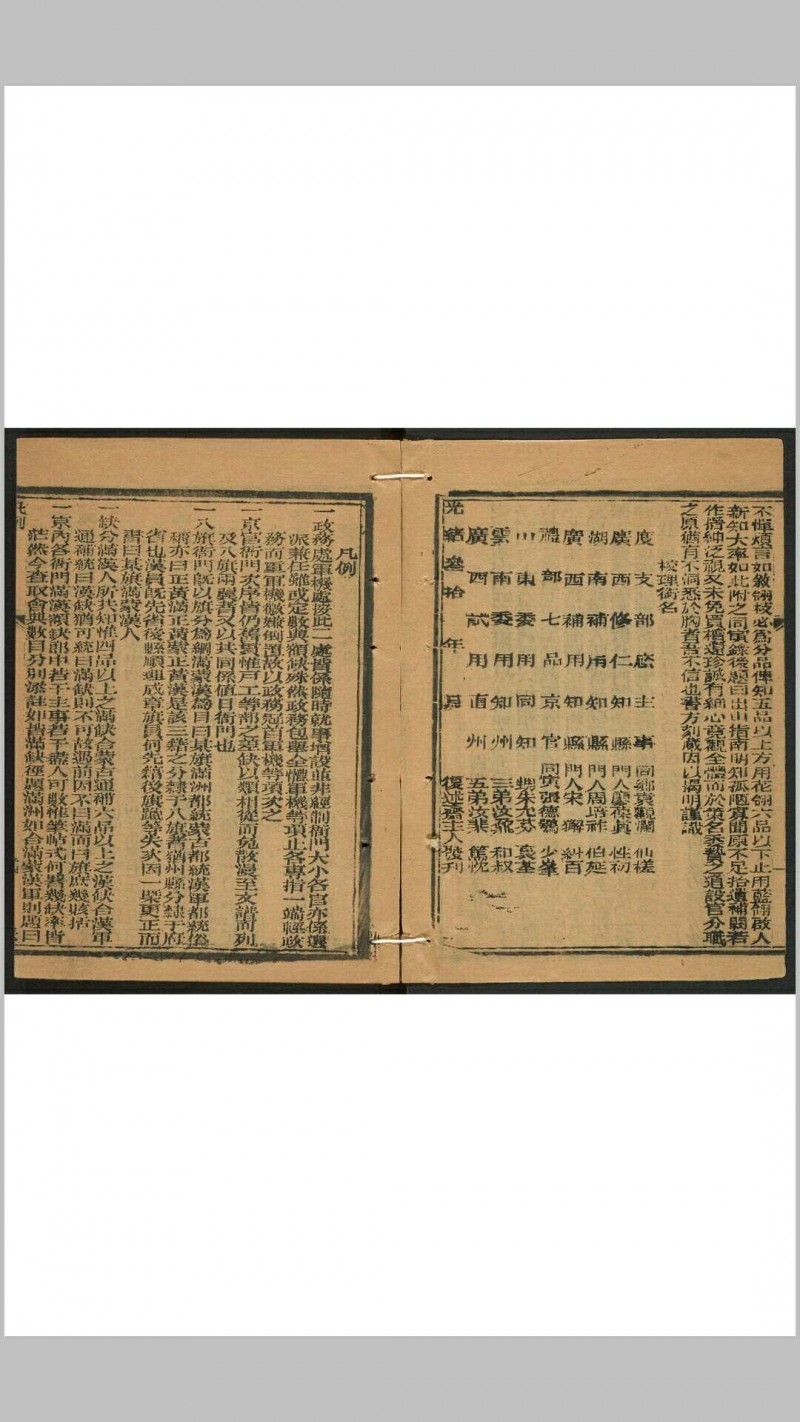 不憚煩言如敘翎枝必爲分品俾知五品以上方用花翎六品以下止用藍翎啟人
新知大率如此附之同寅錄後題曰出山指南明知孤陋寡聞原不足拾遺補闕若
作搢紳泛視又未免買櫝還珍誠有細心竟觀全體而於策名委贄之道設官分職
之原猶有不洞悉於胸者吾不信也書方刻蕆因以揭明謹識
校理銜名
度支部主事同鄉袁觀瀾仙槎
廣西修仁知縣門人廖葆真性初
湖南補用知縣門人周培祚伯延
廣西補用知縣門人宋獬斜百
禮部七品京官同寅張德少峯
山東委用同知甥朱允芬基
雲南委用知州三弟汝和叔
廣西試用直州五弟汝棐篤忱
光緒叁拾年復述齋主人發刊
凡例
一政務處軍機處後此二處皆係隨時就事增設並非經制衙門大小各官亦係選
派兼任雖或定數與額缺殊然政務包舉全體軍機等項止各專指一端經政
務而軍軍機微嫌倒置故以政務冠首軍機等項次之
一京官衙門次序皆仍舊貫惟戸工等部之差缺以類相從而免散漫至支譜司列
及八旗兩翼者又以其同係値日衙門也
一八旗衙門既以旗分爲綱滿蒙漢爲目曰某旗滿洲都統蒙古都統漢軍都統俗
稱亦曰正黃滿正黃蒙正黃漢是該三籍之分隸于八旗書猶州縣分隸于府
省也漢員既先省後縣順理成章旗員何先籍後旗蹠等失次因一槩更正而
書曰某旗滿蒙漢人
一缺分滿漢人所共知惟四品以上之滿缺合蒙古通補六品以上之漢缺合漢軍
通補統曰漢缺猶可統曰滿缺則不可故遇前因不曰滿而曰旗庶幾賅括
一京內各衙門滿漢額缺郎中若干主事若干盡人可數惟筆帖式何署幾缺率皆
茫然今查取會典數目分別添註如皆滿缺徑題滿洲如合滿蒙漢軍則題曰
凡例